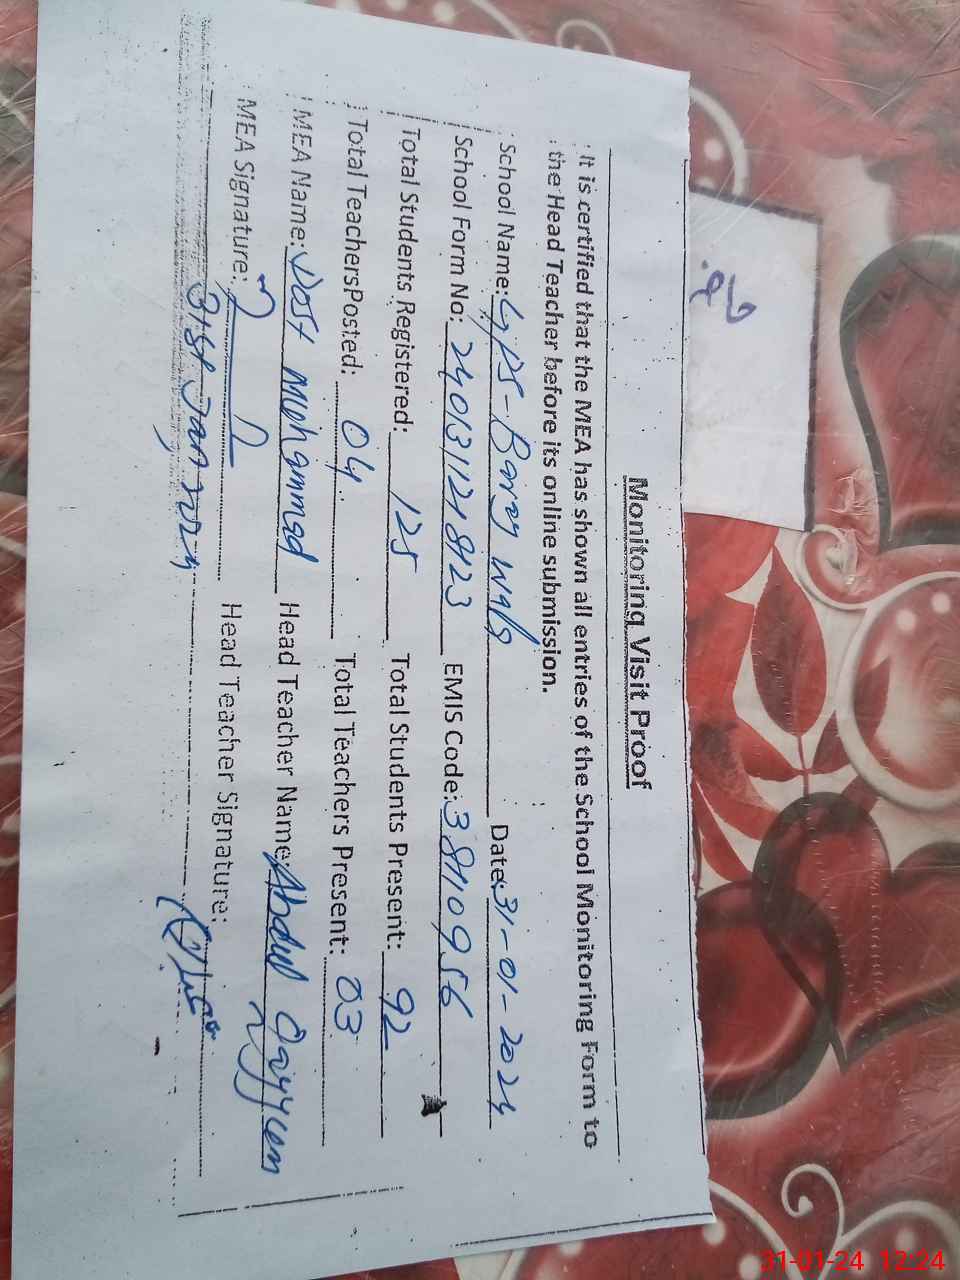 Monitoring Visit Proof
It is certified that the MEA has shown all entries of the School Monitoring Form to
the Head Teacher before its online submission.
School Name: GPS-Baray Wala Date: 31-01-2024
School Form No: 2401311218123 EMIS Code: 38110956
Total Students Registered: 125 Total Students Present: 92
Total TeachersPosted: 04 Total Teachers Present: 03
MEA Name: Dost Mohammad Head Teacher Name: Abdul Qayyum
MEA Signature: Head Teacher Signature:
31st Jan 2024
31-01-24 12:24